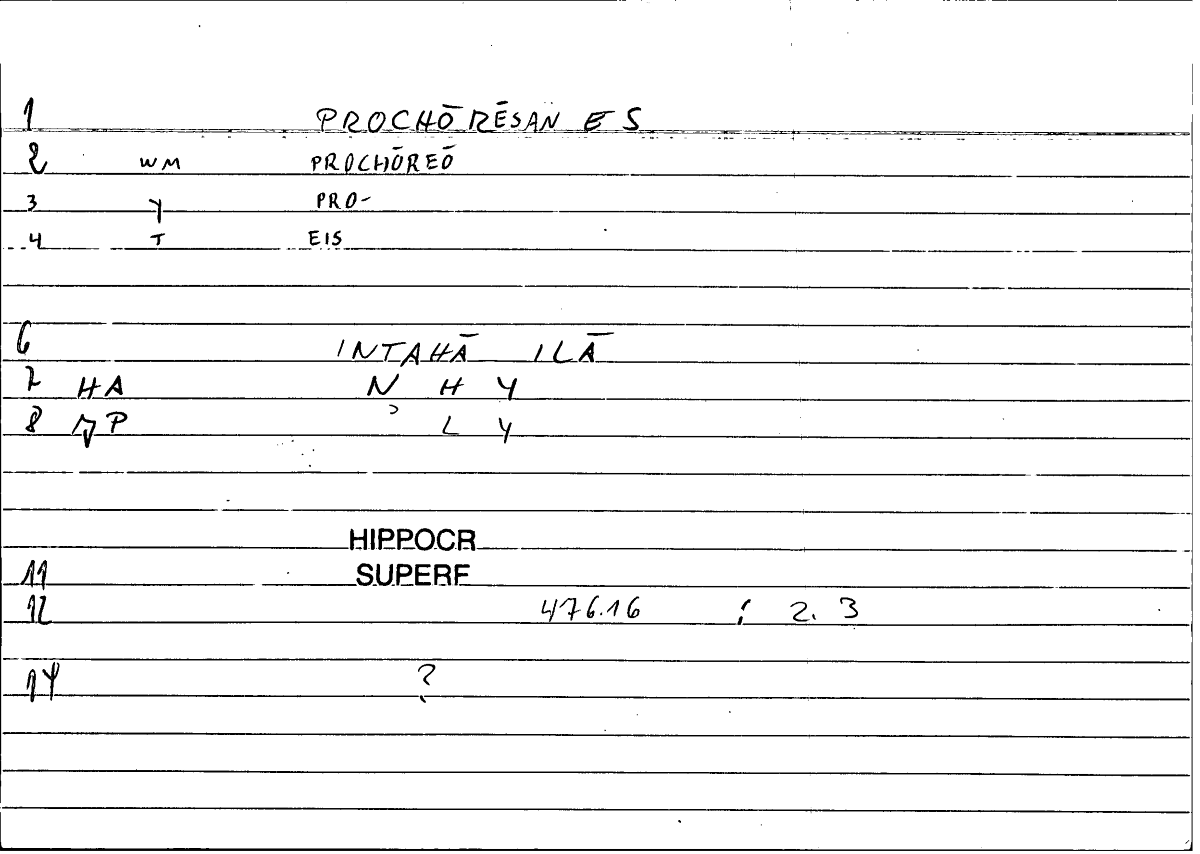 1 PROCHŌRĒSAN ES
2 WM PROCHŌREŌ
3 Y PRO-
4 T EIS
6 INTAHĀ ILĀ
7 HA N H Y
8 P ʾ L Y
HIPPOCR
11 SUPERF
12 476.16 ; 2. 3
14 ?